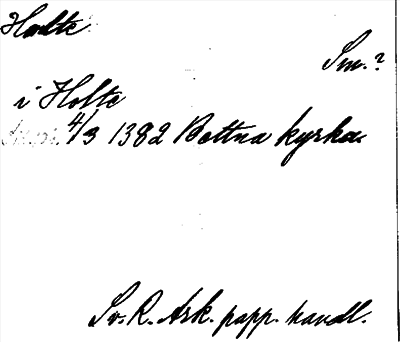 Holte
Sm.?
i Holte
4/3 1382 Bettna kyrka.
Sv. R. Ark. papp. handl.